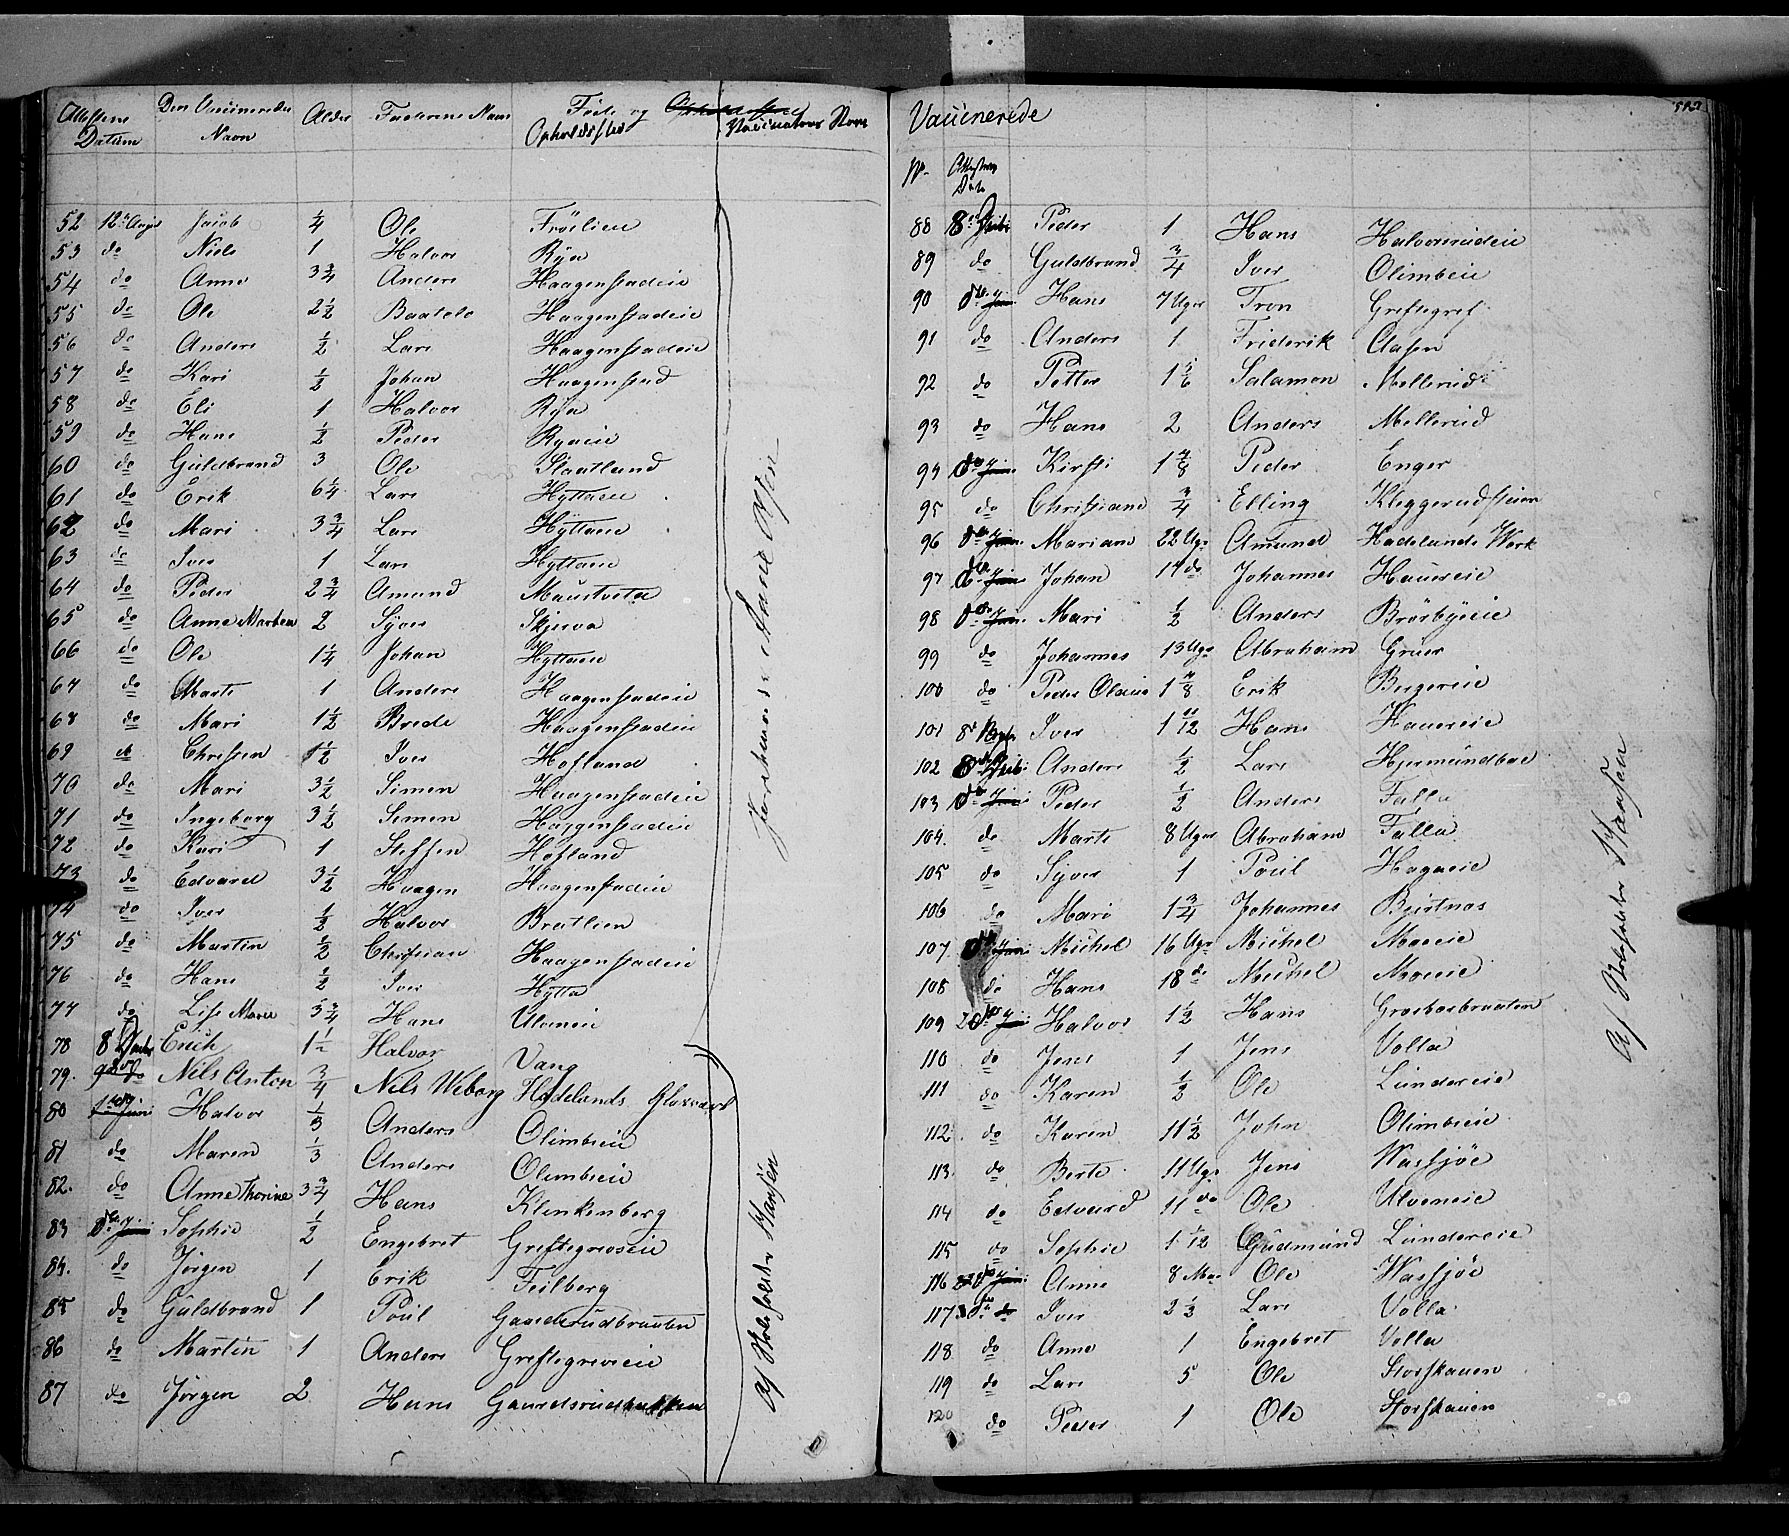 Attestens Datum Den Vaccineredes Navn Alder Faderens Navn Føde og Opholdssted Vaccinateurs Navn
52 12 Augs Jacob 1/4 Ole Frøslien
53 do Niels 1 Halvor Rya
54 do Anne 3 3/4 Anders Haagenstadeie
55 do Ole 2 1/2 Baatolo Haagenstadeie
56 do Anders 1/2 Lars Haagenstadeie
57 do Kari 1/2 Johan Haagenstad
58 do Eli 1 Halvor Rya
59 do Hans 1/2 Peder Ryaeie
60 do Guldbrand 3 Ole Slaatland
61 do Erik 6 1/4 Lars Hyttaeie
62 do Mari 3 3/4 Lars Hyttaeie
63 do Iver 1 Lars Hyttaeie
64 do Peder 2 3/4 Amund Maustveta
65 do Anne Marthea 2 Syver Skjerva
66 do Ole 1 1/4 Johan Hyttaeie
67 do Marte 1 Anders Haagenstadeie
68 do Mari 1 1/2 Brede Haagenstadeie
69 do Christen 1 1/2 Iver Hofland
70 do Mari 3 1/2 Simen Haagenstadeie
71 do Ingeborg 3 1/2 Simen Haagenstadeie
72 do Kari 1 Steffen Hofland
73 do Edvard 3 1/2 Haagen Haagenstadeie
74 do Iver 1/2 Halvor Bratlien
75 do Martin 1/2 Christian Haagenstadeie
76 do Hans 1/2 Iver Hytta
77 do Lise Marie 3 3/4 Hans Ulveneie
78 8 Erich 1 1/2 Halvor Vang
79. do Nils Anton 3/4 Nils Weborg Hadelands Glasværk
80 Juni Halvor 1/3 Anders Olimbeie
81 do Maren 1/3 Anders Olimbeie
82. do Anne Thorine 3 3/4 Hans Klinkenberg
83 Sophie 1/2 Engebret Greftegreveie
84. do Jørgen 1 Erik Feilberg
85 do Guldbrand 1 Poul Gaardsrudbraaten
86 do Martin 1 Anders Greftegreveie
87 do Jørgen 2 Hans
af Holsfelder Hansen
Vaccinerede
N. Attestens Dato
88 8 Peder 1 Hans Halvorsrudeie
89 do Guldbrand 3/4 Iver Olimbeie
90 Hans 7 Uger Tron Greftegref
91 do Anders 1 Friderik Aasen
92 do Petter 1 1/6 Salamon Mellerud
93 do Hans 2 Anders Mellerud
94 Kirsti 1 7/8 Peder Enger
95 do Christiane 3/4 Elling Kleggerudsteien
96 Mariane 22 Ugr Amund Hadelands Værk
97 Johan 14 do Johannes Hauereie
98 Mari 1/2 Anders Brørbyeie
99 do Johannes 13 Uger Abraham Gruer
100 do Peder Olaus 1 7/8 Erik Bergereie
101 8 Iver 1 11/12 Hans Hauereie
102 Anders 1/2 Lars Hjermundboe
103 Peder 1/2 Anders Falla
104. do Marte 8 Uger Abraham Falla
105 do Syver 1 Poul Hagaeie
106 do Mari 1 3/4 Johannes Bjertnæs
107. Michel 16 Ugr Michel Moeeie
108 do Hans 18 do Michel Moeeie
109 20 Halvor 1 1/2 Hans Grosbosbraaten
110 do Jens 1 Jens Volla
111 do Karen 1/2 Ole Lundereie
112. do Karen 11 1/2 John Olimbeie
113. do Berte 11 Ugr Jens Wassjøe
114 do Edvard 11 do Ole Ulveneie
115 do Sophie 1 1/12 Gudmund Lundereie
116 Anne 8 Mdr Ole Wassjøe
117 Iver 2 1/3 Lars Volla
118 do Anne 1 Engebret Volla
119 do Lars 5 Ole Storskauen
120 do Peder 1 Ole Storskauen
Af Holsfelder Hansen